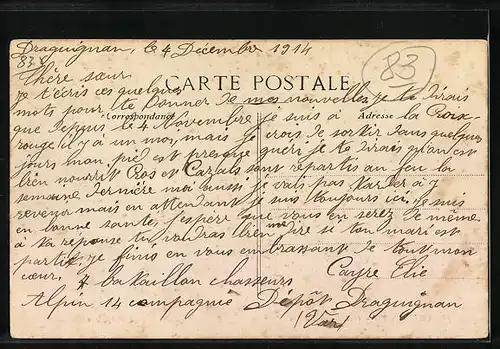 Draguignan, le 4 Décembre 1914
83
838
Chère sœur
CARTE POSTALE
Je t'écris ces quelques
mots pour te donner de mes nouvelles, je te dirais
Correspondance
Adresse
que depuis le 4 Novembre je suis à la Croix
rouge il y a un moi, mais je crois de sortir dans quelques
jours mon pied est presque guéri je te dirais qu'on est
bien nourrit Ros et Carals sont repartis au feu la
semaine dernière moi aussi je vais pas tarder à y
revenir mais en attendant je suis toujours ici, Je suis
en bonne santé j'espère que vous en serez de même
à ta réponse tu voudras bien me dire si ton mari est
partit je finis en vous embrassant de tout mon
cœur, Cayre Elie
7 bataillon chasseurs
Alpin 14 compagnie Dépôt Draguignan
(Var)